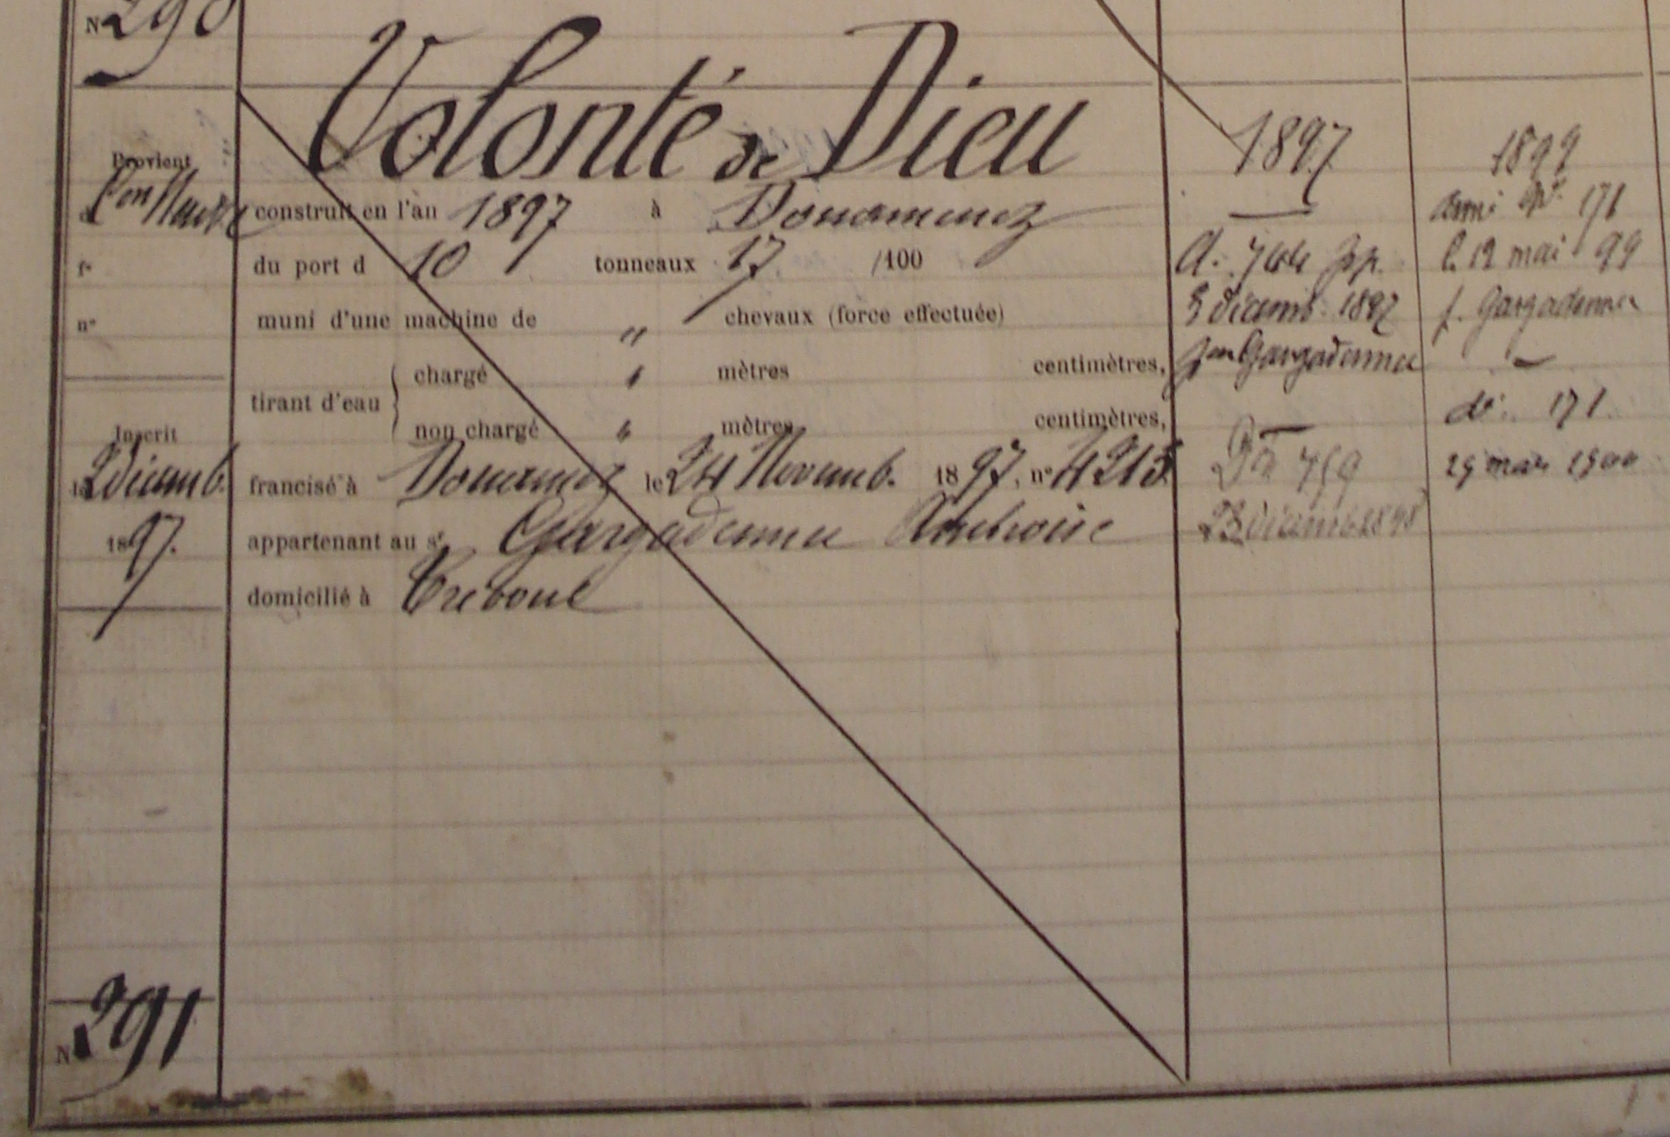 N 290
Volonté de Dieu
Provient
d
construit en l'an 1897 à Douarnenez
f°
du port d 10 tonneaux 17 /100
n°
muni d'une machine de " chevaux (force effectuée)
tirant d'eau
chargé " mètres centimètres,
non chargé " mètres centimètres,
Inscrit
le 2 décemb.
1897.
francisé à Douarnenez le 24 Novemb. 1897, n° 4215
appartenant au sr. Gargadennec Ambroise
domicilié à Treboul
N 291
1897
A. 744
3 décemb. 1897
Gargadennec
Dn 759
23 décemb 1898
1899
armé 171
le 12 mai 99
f. Gargadennec
do. 171.
29 mars 1900